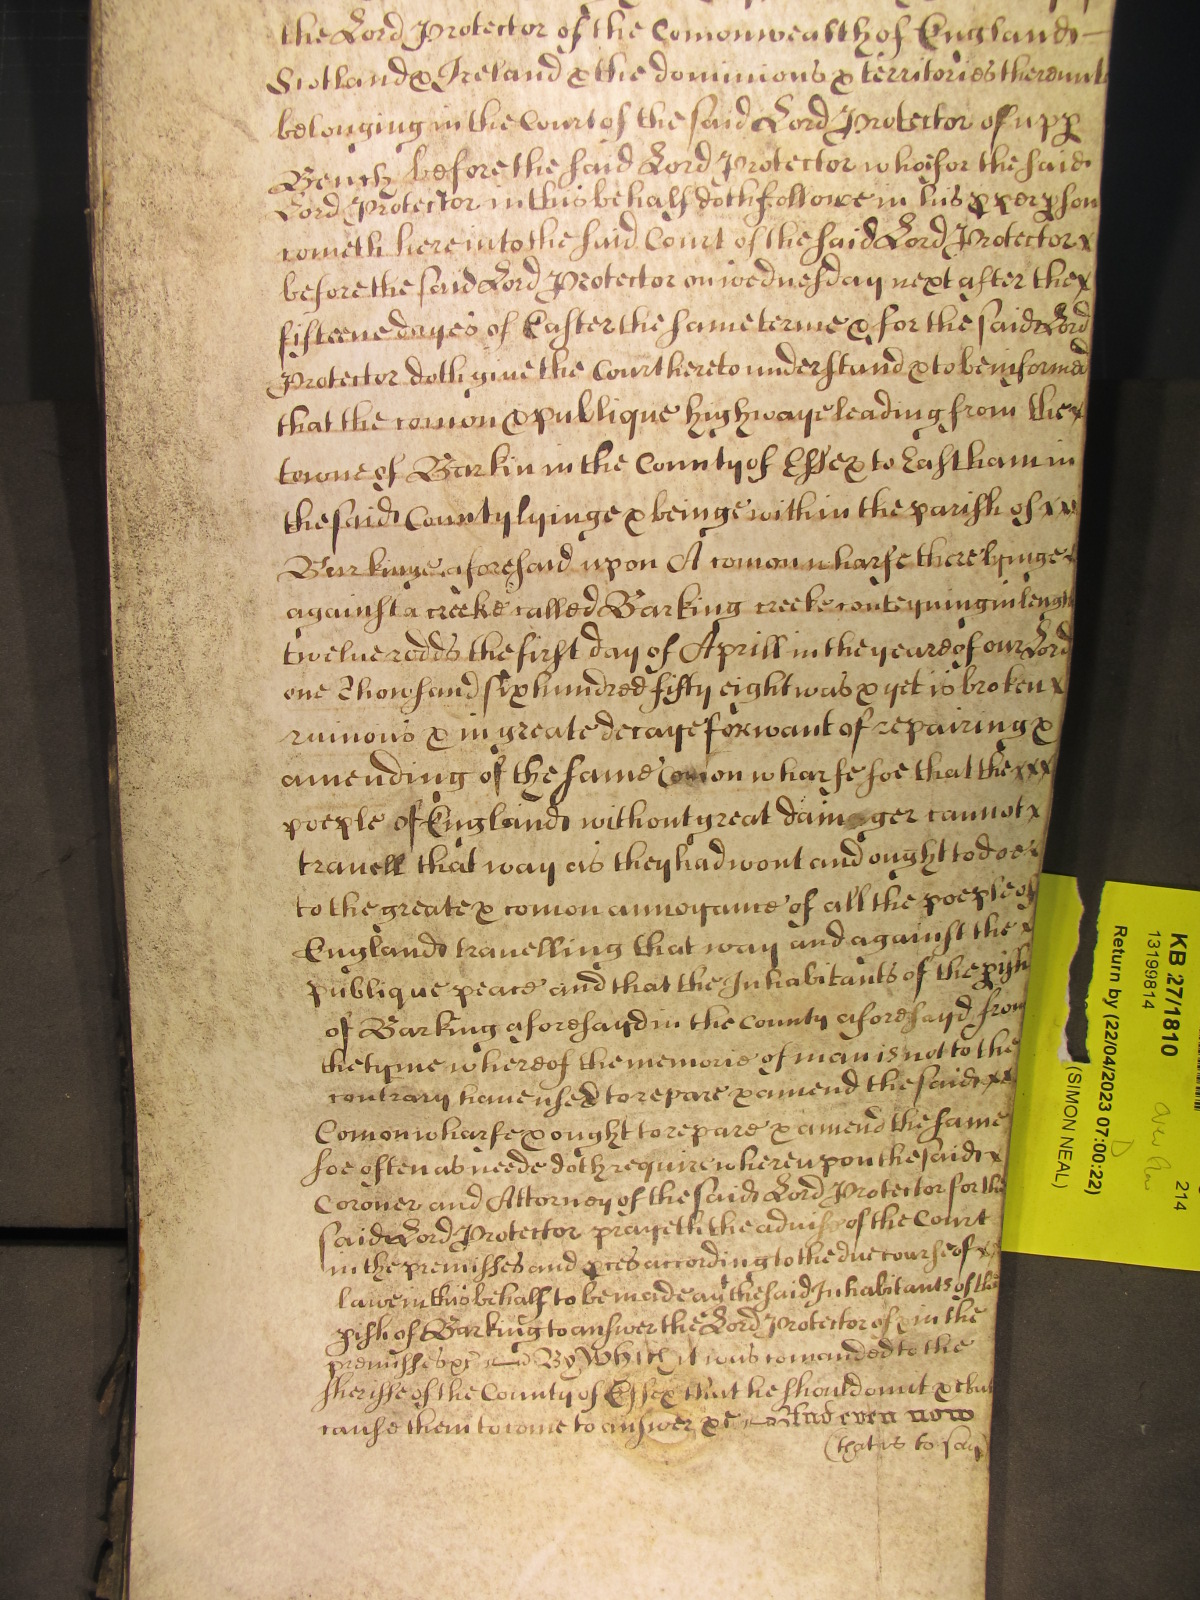 the Lord Protector of the Comonwealth of England
Scotland & Ireland & the dominions & territories thereunto
belonging in the Court of the said Lord Protector of upp
Bench before the said Lord Protector whoe for the said
Lord Protector in this behalf doth followe in his pper pson
cometh here into the said Court of the said Lord Protector
before the said Lord Protector on wednesday next after the
fifteene dayes of Easter the same terme & for the said Lord
Protector doth give the Court here to understand & to be informed
that the comon & publique highwaye leading from the
towne of Barkin in the County of Essex to Eastham in
the said County lyinge & beinge within the parish of
Barkinge aforesaid upon A comon wharfe there lyinge
against a creeke called Barking creeke conteyning in length
twelve rodds the first day of Aprill in the yeare of our Lord
one Thowsand six hundred fifty eight was & yet is broken
ruinous & in greate decaye for want of repairing &
amending of the same Comon wharfe soe that the
poeple of England without great dainger cannot
travell that way as they had wont and ought to doe
to the greate & comon annoyance of all the poeple of
England travelling that way and against the
publique peace and that the Inhabitants of the pish
of Barking aforesayd in the County aforesayd from
the tyme whereof the memorie of man is not to the
contrary have used to repare & amend the said
Comon wharfe & ought to repare & amend the same
soe often as neede doth require whereupon the said
Coroner and Attorney of the said Lord Protector for the
said Lord Protector prayeth the advise of the Court
in the premisses and pces according to the due course of
lawe in this behalf to be made agt the said Inhabitants of the
pish of Barking to answer the Lord Protector of & in the
premisses &c By Which it was comanded to the
sheriffe of the County of Essex that he should omit &c but
cause them to come to answer &c And even now
(that is to say)
KB 27/1810
13199814
214
Return by (22/04/2023 07:00:22)
(SIMON NEAL)